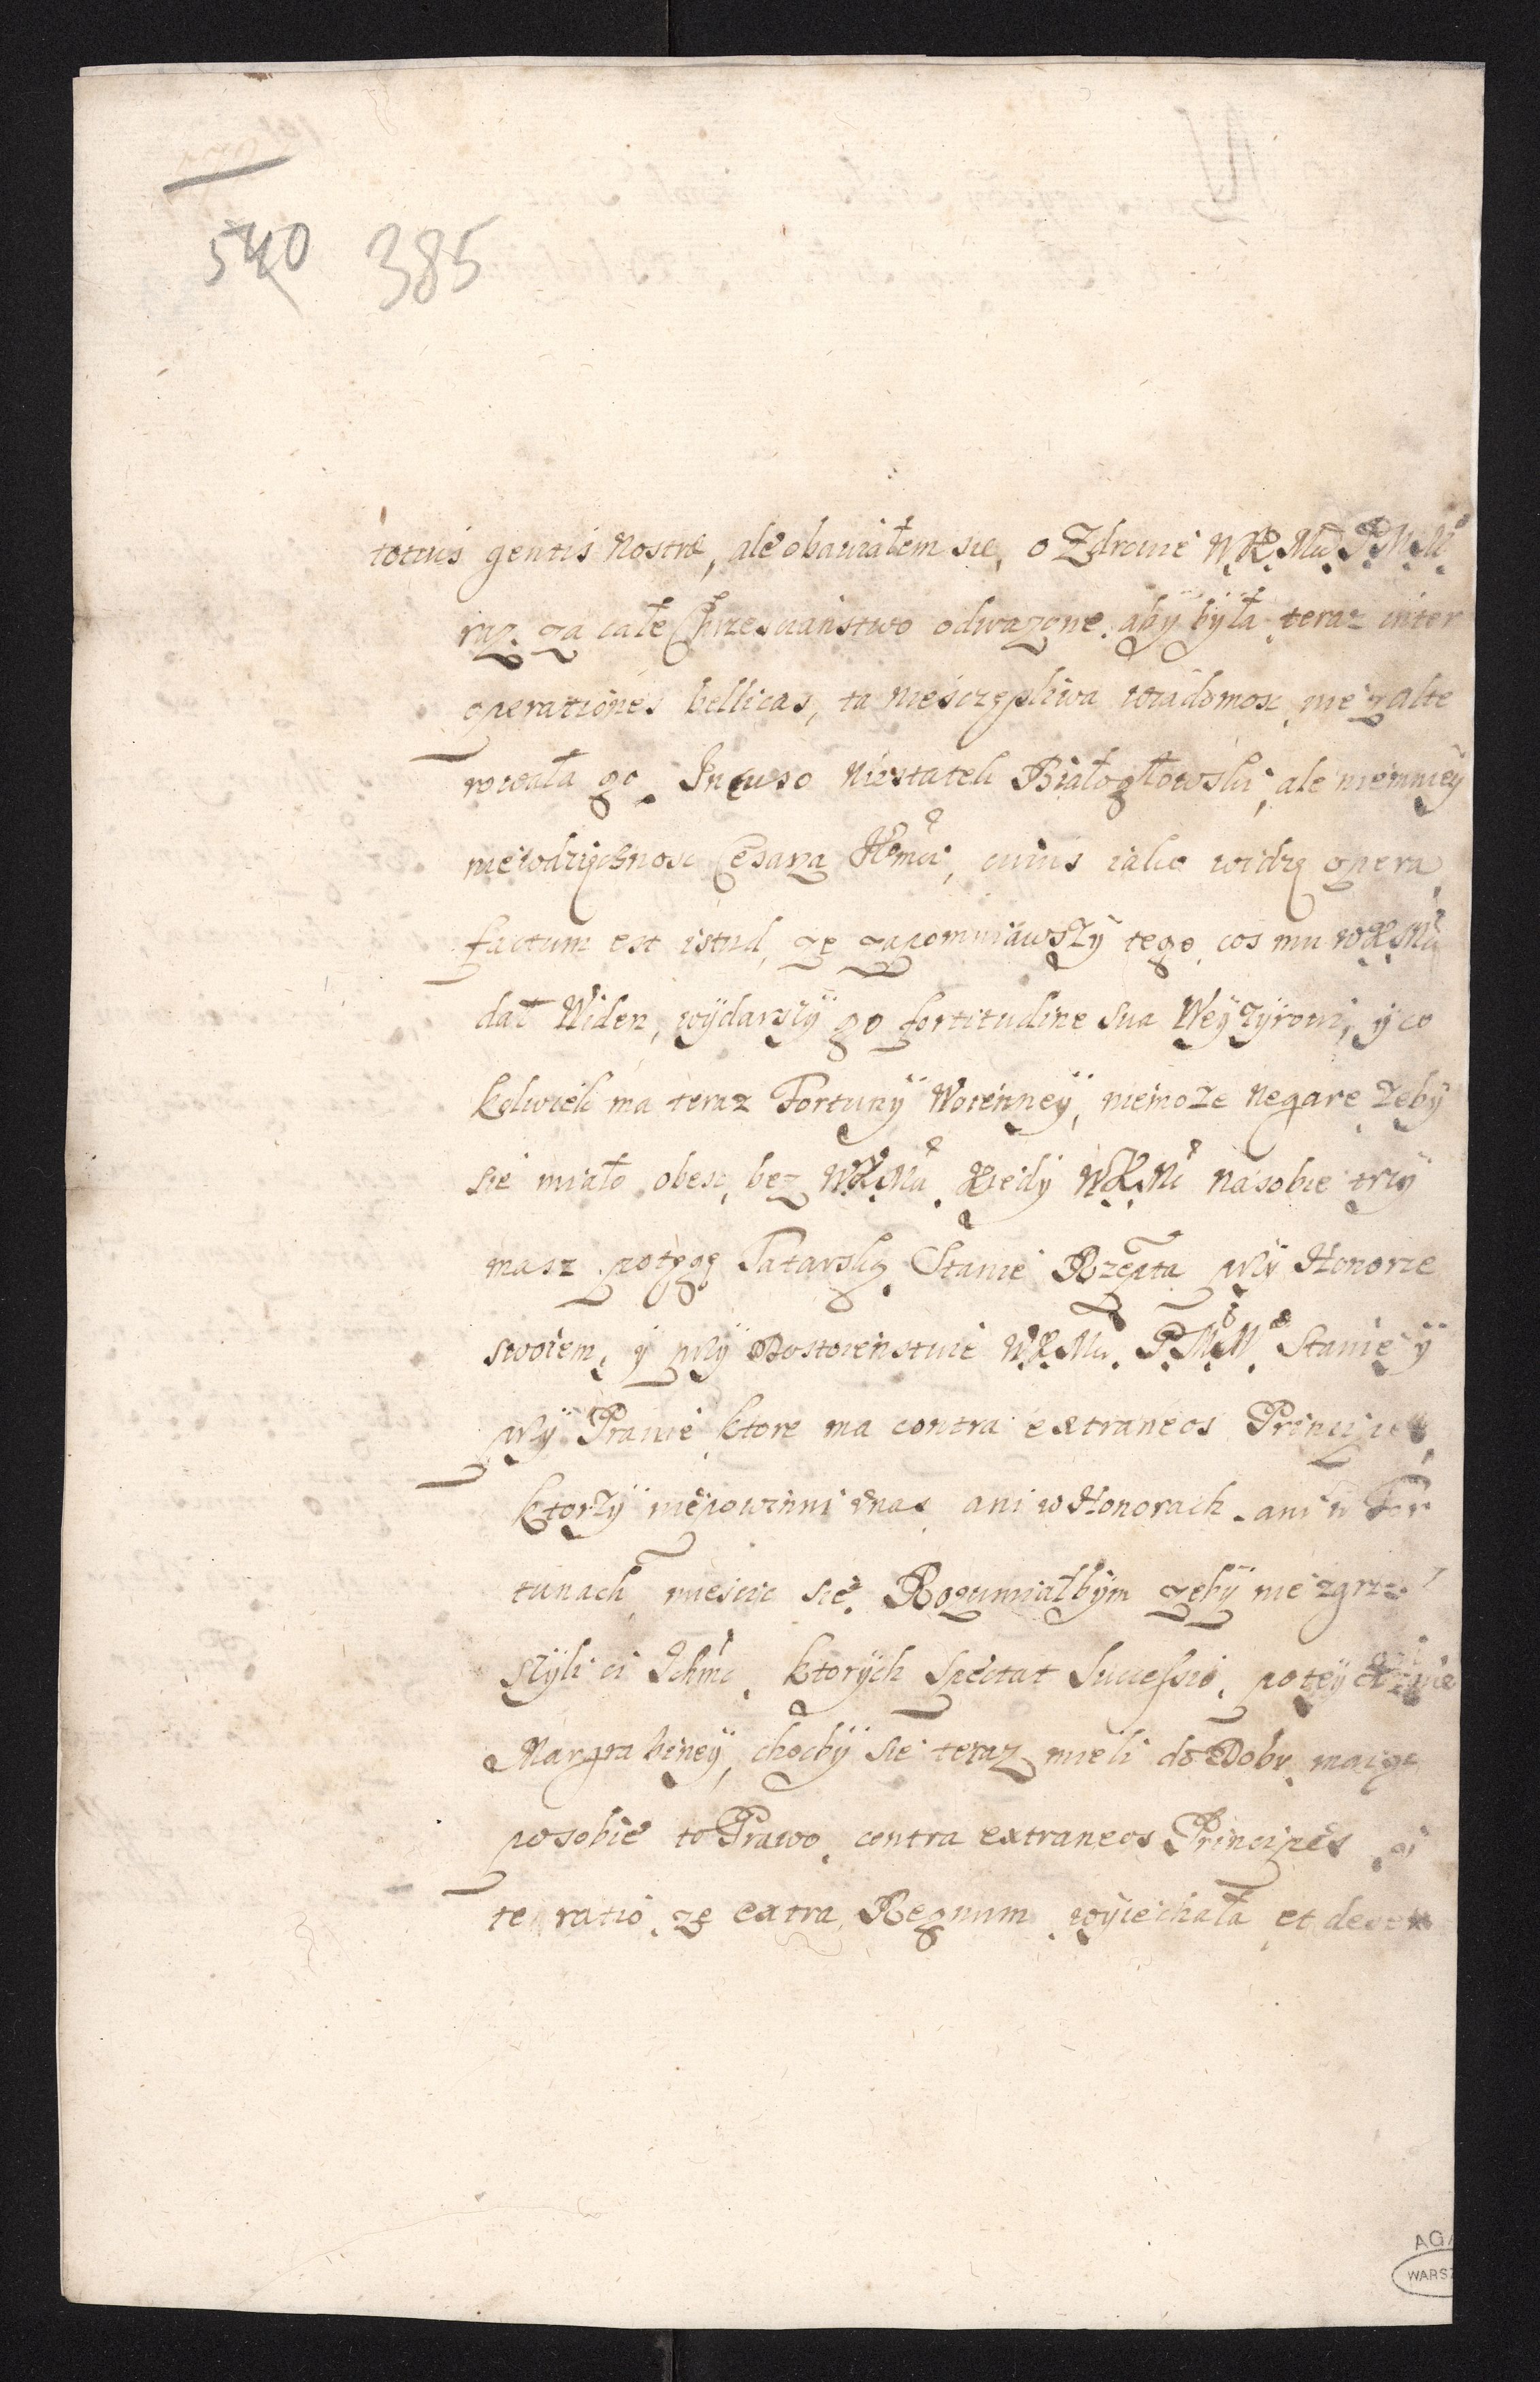 540 385
totius gentis nostræ, ale obawiałem się, o Zdrowie W.K.Mci P.M.M.
raz za całe Chrzescianstwo odwazone, aby była teraz inter
operationes bellicas, ta niesczęsliwa wiadomosc nie zalte
rowała go. In casso niestatek Białogłowski, ale niemniey
niewdzięcznosc Cesarza Jemci, cuius iako widzę opera
factum est istud, ze zapomniawszy tego, cos mu W.K.Mc
dał Widen, wydarszy go fortitudine sua Weyzyrowi, y co
kolwiek ma teraz Fortuny Woienney, niemoze negare zeby
sie miało obesc, bez W.K.Mci kiedy W.K.Mc na sobie trzy
masz potęgę Tatarską. Stanie Rzepta przy Honorze
swoiem, y przy Dostoienstwie W.K.Mci P.M.M. Stanie y
przy Prawie ktore ma contra extraneos Principes,
ktorzy niepowinni unas ani w Honorach, ani w For
tunach miescic się. Rozumiałbym zeby nie zgrze
szyli ci Ichmc, ktorych spectat Successio, po tey
Margrabiney, chocby sie teraz mieli do Dobr, maiąc
posobie to Prawo contra extraneos Principes, y
te ratio ze extra Regnum wyiechała et deser
AGA
WARSZ